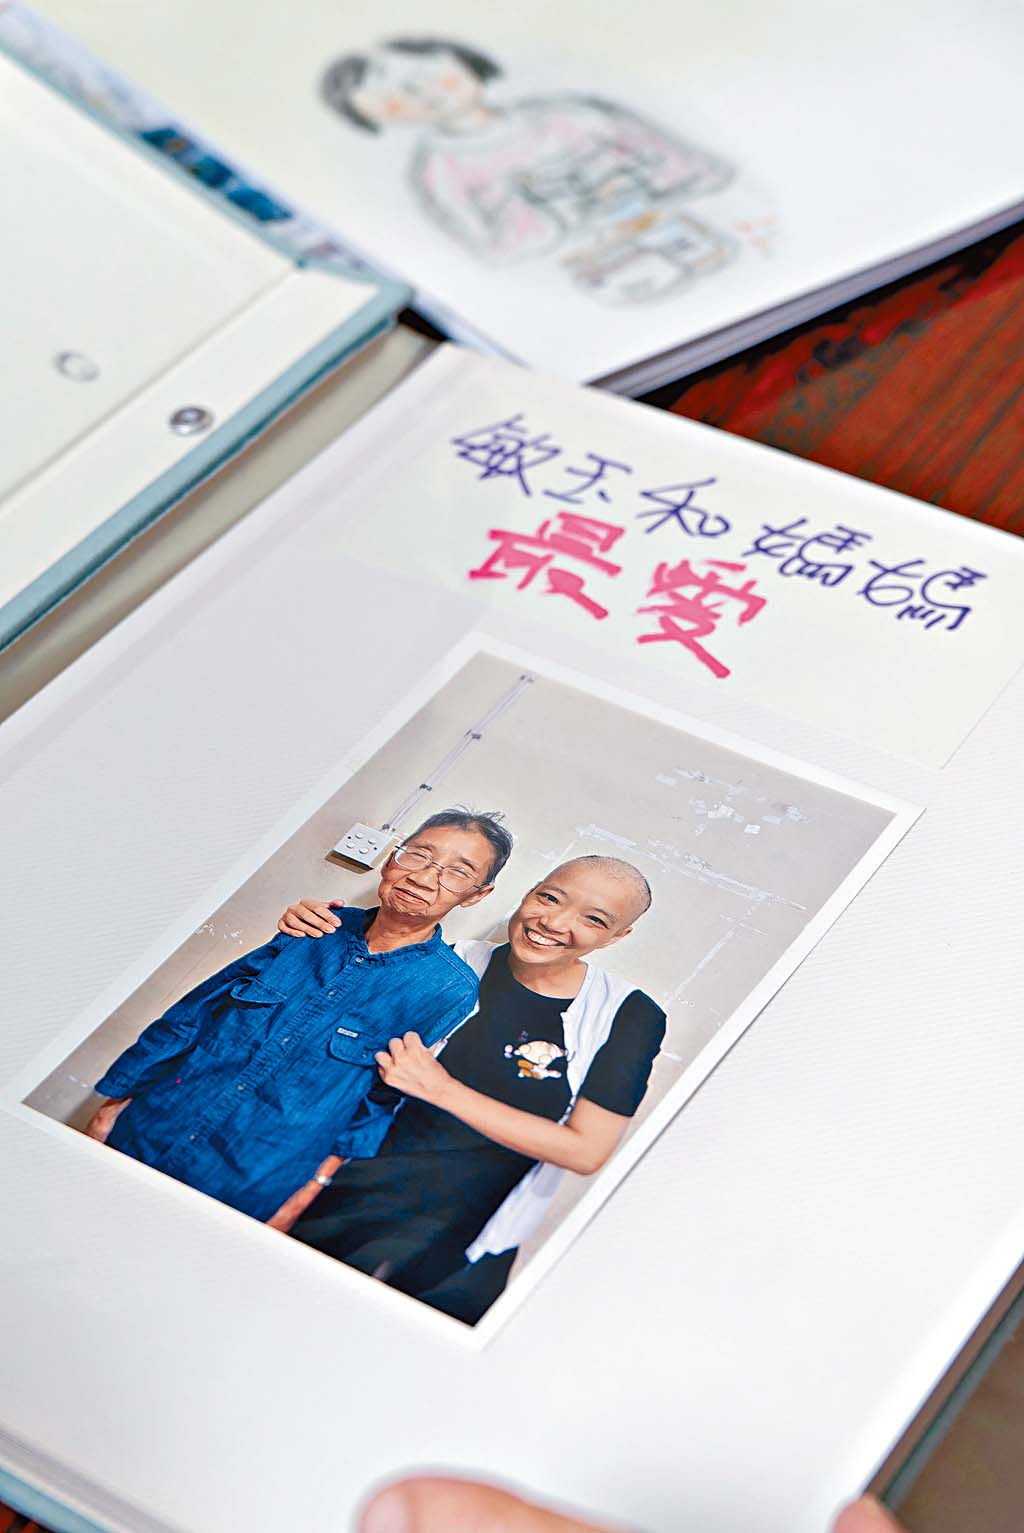 敏玉和媽媽
最愛